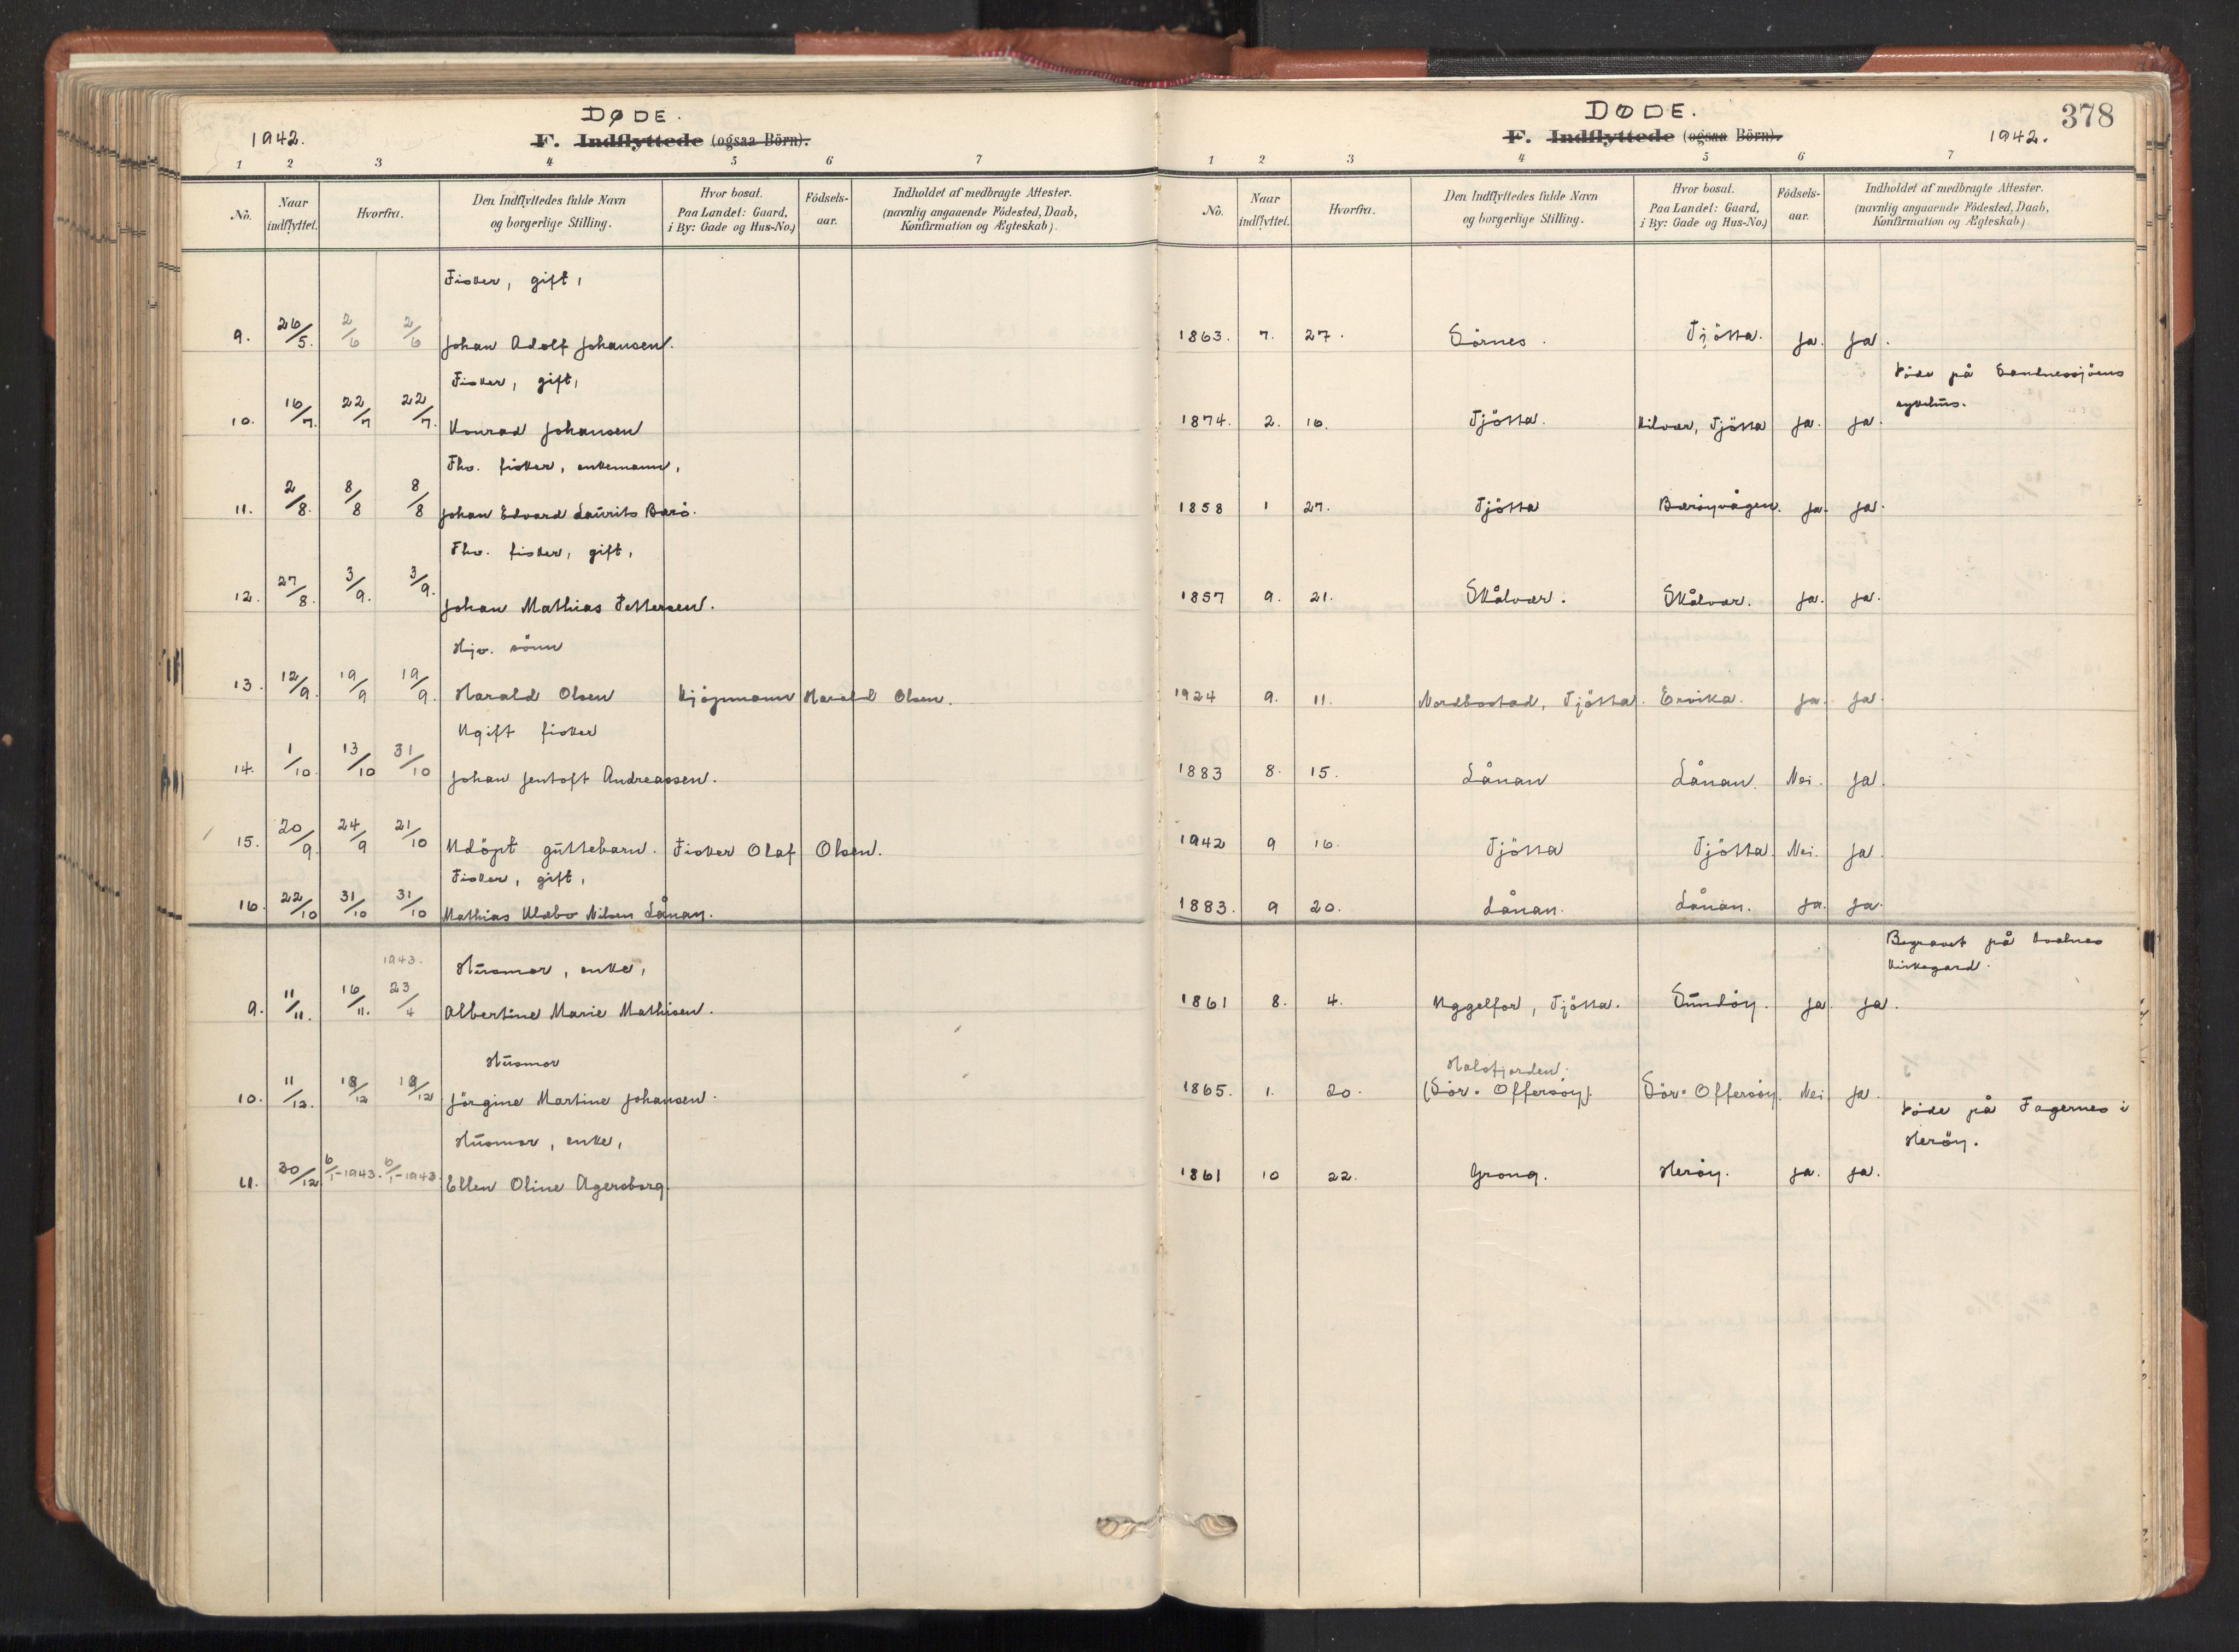 DØDE.
1942.
F. Indflyttede (ogsaa Börn).
1 2 3 4 5 6 7
No.
Naar indflyttet.
Hvorfra.
Den Indflyttedes fulde Navn og borgerlige Stilling.
Hvor bosat. Paa Landet: Gaard, i By: Gade og Hus-No.)
Födsels-aar.
Indholdet af medbragte Attester. (navnlig angaaende Födested, Daab, Konfirmation og Ægteskab).
Fisker, gift,
9. 26/5. 2/6 2/6 Johan Adolf Johansen.
Fisker, gift,
10. 16/7. 22/7 22/7. Konrad Johansen
Fhv. fisker, enkemann,
11. 2/8. 8/8 8/8 Johan Edvard Laurits Barö.
Fhv. fisker, gift,
12. 27/8. 3/9. 3/9. Johan Mathias Pettersen.
Hjv. sönn
13. 12/9. 19/9 19/9. Harald Olsen Kjöpmann Harald Olsen.
Ugift fisker
14. 1/10. 13/10 31/10 Johan Jentoft Andreassen.
15. 20/9. 24/9 21/10 Udöpt guttebarn. Fisker Olaf Olsen.
Fisker, gift,
16. 22/10 31/10 31/10 Mathias Klæbo Nilsen Lånan.
1943. Husmor, enke,
9. 11/11. 16/11. 23/4 Albertine Marie Mathisen.
Husmor
10. 11/12. 18/12 18/12 Jörgine Martine Johansen.
Husmor, enke,
11. 30/12 6/1-1943. 6/1-1943. Ellen Oline Agersborg.
DØDE.
378
F. Indflyttede (ogsaa Börn).
1942.
1 2 3 4 5 6 7
No.
Naar indflyttet.
Hvorfra.
Den Indflyttedes fulde Navn og borgerlige Stilling.
Hvor bosat. Paa Landet: Gaard, i By: Gade og Hus-No.)
Födsels-aar.
Indholdet af medbragte Attester. (navnlig angaaende Födested, Daab, Konfirmation og Ægteskab).
1863. 7. 27. Sörnes. Tjötta. Ja. Ja.
Döde på Sandnessjöens
sykehus.
1874. 2. 16. Tjötta. Kilvær, Tjötta Ja. Ja.
1858 1 27. Tjötta Bæröyvågen. Ja. Ja.
1857 9. 21. Skålvær. Skålvær. Ja. Ja.
1924 9. 11. Nordbostad, Tjötta. Ervika. Ja. Ja.
1883 8. 15. Lånan Lånan. Nei. Ja.
1942 9 16. Tjötta Tjötta. Nei. Ja.
1883. 9 20. Lånan. Lånan. Ja. Ja.
Begravet på Kvalnes
kirkegard.
1861 8. 4. Uggelfor, Tjötta. Sundöy. Ja. Ja.
Halsfjorden.
1865. 1. 20. (Sör-Offersöy). Sör-Offersöy. Nei Ja.
Döde på Fagernes i
Heröy.
1861 10 22. Grong. Heröy. Ja. Ja.